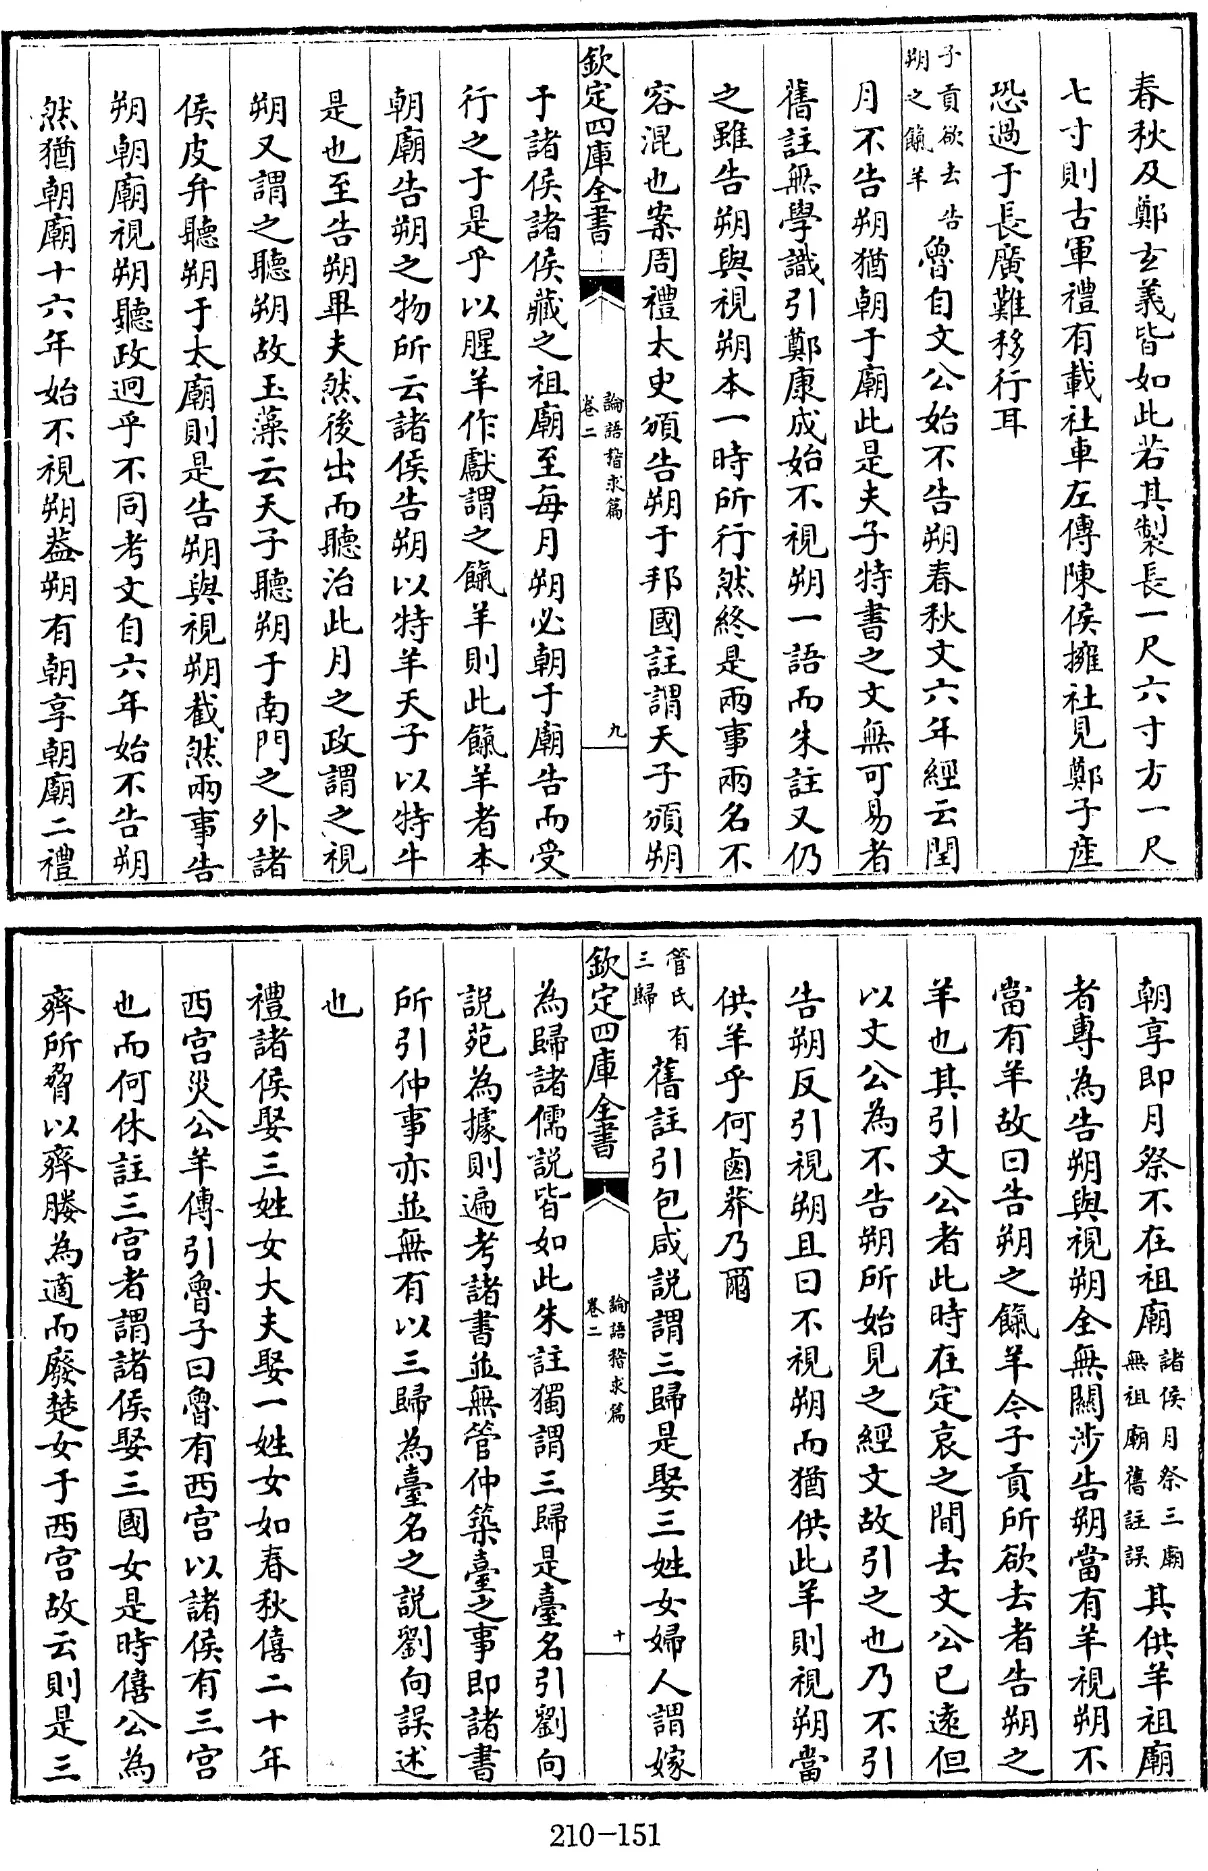 春秋及鄭玄義皆如此若其製長一尺六寸方一尺
七寸則古軍禮有載社車左傳陳侯擁社見鄭子産
恐過于長廣難移行耳
子貢欲去告
朔之餼羊
魯自文公始不告朔春秋文六年經云閏
月不告朔猶朝于廟此是夫子特書之文無可易者
舊註無學識引鄭康成始不視朔一語而朱註又仍
之雖告朔與視朔本一時所行然終是兩事兩名不
容混也案周禮太史頒告朔于邦國註謂天子頒朔
欽定四庫全書
論語稽求篇
卷二
九
于諸侯諸侯藏之祖廟至每月朔必朝于廟告而受
行之于是乎以腥羊作獻謂之餼羊則此餼羊者本
朝廟告朔之物所云諸侯告朔以特羊天子以特牛
是也至告朔畢夫然後出而聽治此月之政謂之視
朔又謂之聽朔故玉藻云天子聽朔于南門之外諸
侯皮弁聽朔于太廟則是告朔與視朔截然兩事告
朔朝廟視朔聽政迥乎不同考文自六年始不告朔
然猶朝廟十六年始不視朔葢朔有朝享朝廟二禮
朝享即月祭不在祖廟
諸侯月祭三廟
無祖廟舊註誤
其供羊祖廟
者專為告朔與視朔全無關涉告朔當有羊視朔不
當有羊故曰告朔之餼羊今子貢所欲去者告朔之
羊也其引文公者此時在定哀之間去文公已遠但
以文公為不告朔所始見之經文故引之也乃不引
告朔反引視朔且曰不視朔而猶供此羊則視朔當
供羊乎何鹵莽乃爾
管氏有
三歸
舊註引包咸說謂三歸是娶三姓女婦人謂嫁
欽定四庫全書
論語稽求篇
卷二
十
為歸諸儒說皆如此朱註獨謂三歸是臺名引劉向
說苑為據則遍考諸書並無管仲築臺之事即諸書
所引仲事亦並無有以三歸為臺名之說劉向誤述
也
禮諸侯娶三姓女大夫娶一姓女如春秋僖二十年
西宮災公羊傳引魯子曰魯有西宮以諸侯有三宮
也而何休註三宮者謂諸侯娶三國女是時僖公為
齊所脅以齊媵為適而廢楚女于西宮故云則是三
210-151